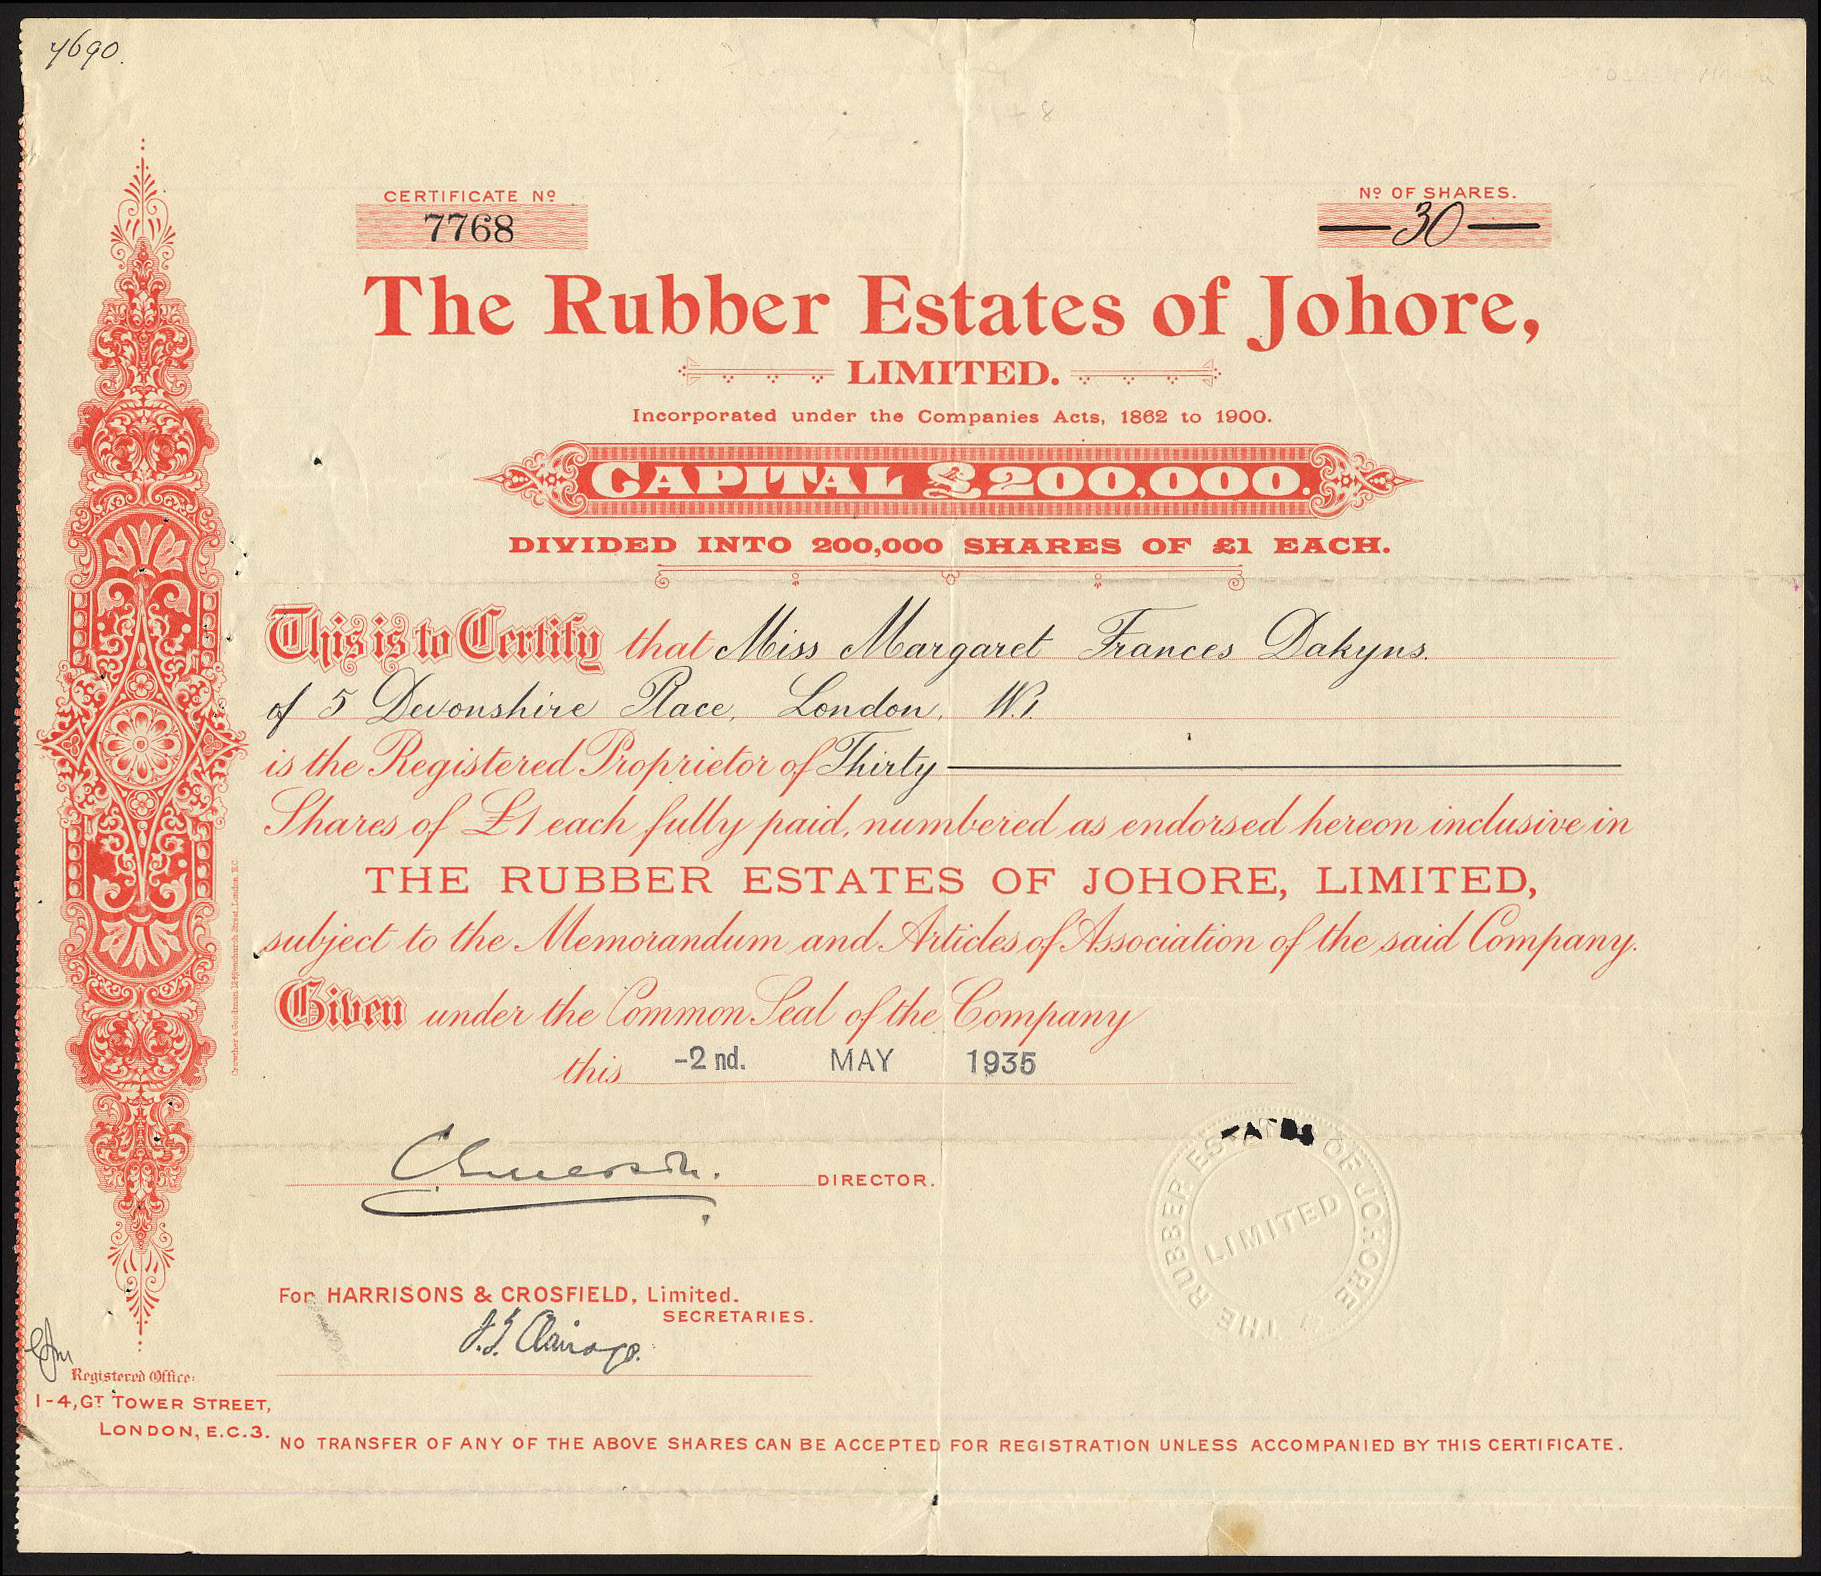 4690.
CERTIFICATE Nº
7768
Nº OF SHARES.
30
The Rubber Estates of Johore,
LIMITED.
Incorporated under the Companies Acts, 1862 to 1900.
CAPITAL £200,000.
DIVIDED INTO 200,000 SHARES OF £1 EACH.
This is to Certify that Miss Margaret Frances Dakyns.
of 5 Devonshire Place, London, W.1.
is the Registered Proprietor of Thirty
Shares of £1 each fully paid, numbered as endorsed hereon inclusive in
THE RUBBER ESTATES OF JOHORE, LIMITED,
subject to the Memorandum and Articles of Association of the said Company.
Given under the Common Seal of the Company
this -2 nd. MAY 1935
DIRECTOR.
THE RUBBER ESTATES OF JOHORE
LIMITED
For HARRISONS & CROSFIELD, Limited.
SECRETARIES.
Registered Office:
1-4, GT TOWER STREET,
LONDON, E.C.3.
NO TRANSFER OF ANY OF THE ABOVE SHARES CAN BE ACCEPTED FOR REGISTRATION UNLESS ACCOMPANIED BY THIS CERTIFICATE.
Crowther & Goodman, 124, Fenchurch Street, London, E.C.